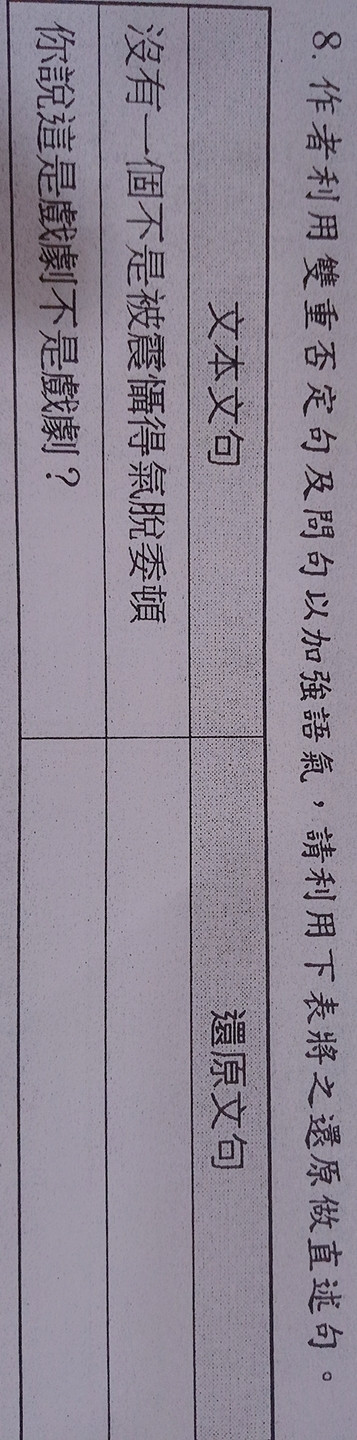 8. 作者利用雙重否定句及問句以加強語氣，請利用下表將之還原做直述句。
文本文句 還原文句
沒有一個不是被震懾得氣脫委頓
你說這是戲劇不是戲劇？